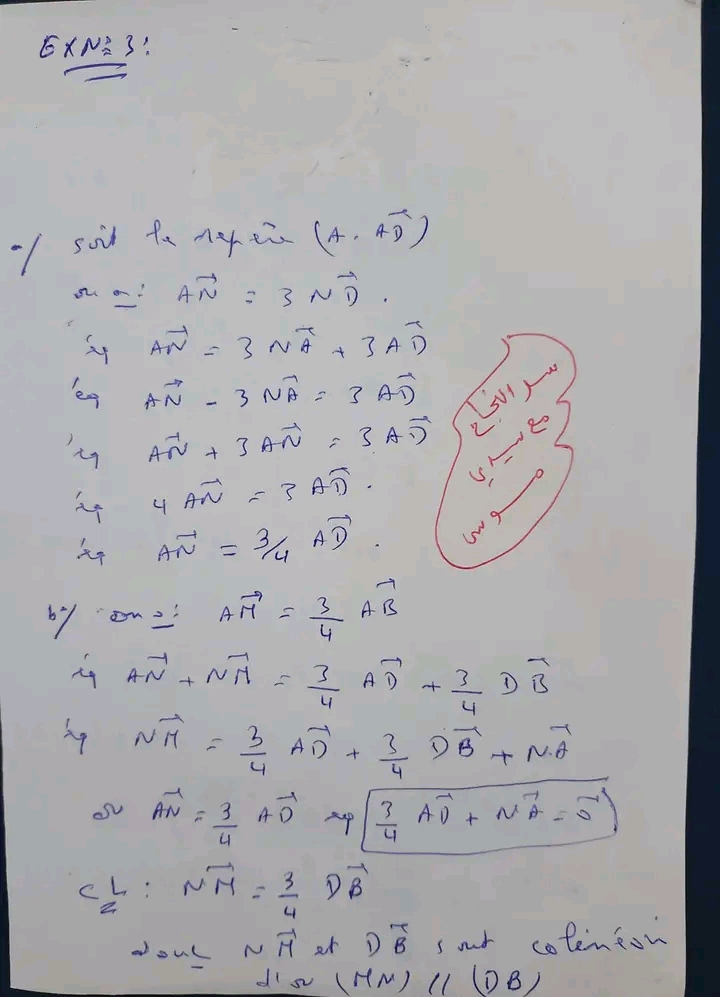 EXN° 3:
a/ soit le repère (A. AD⃗)
on a: AN⃗ = 3 ND⃗.
éq AN⃗ = 3 NA⃗ + 3 AD⃗
éq AN⃗ - 3 NA⃗ = 3 AD⃗
éq AN⃗ + 3 AN⃗ = 3 AD⃗
éq 4 AN⃗ = 3 AD⃗.
éq AN⃗ = 3/4 AD⃗.
سر النجاح
مع سيدي
موسى
b/ on a: AM⃗ = 3/4 AB⃗
éq AN⃗ + NM⃗ = 3/4 AD⃗ + 3/4 DB⃗
éq NM⃗ = 3/4 AD⃗ + 3/4 DB⃗ + NA⃗
or AN⃗ = 3/4 AD⃗ éq 3/4 AD⃗ + NA⃗ = 0⃗
CL: NM⃗ = 3/4 DB⃗
donc NM⃗ et DB⃗ sont
d'où (MN) // (DB)